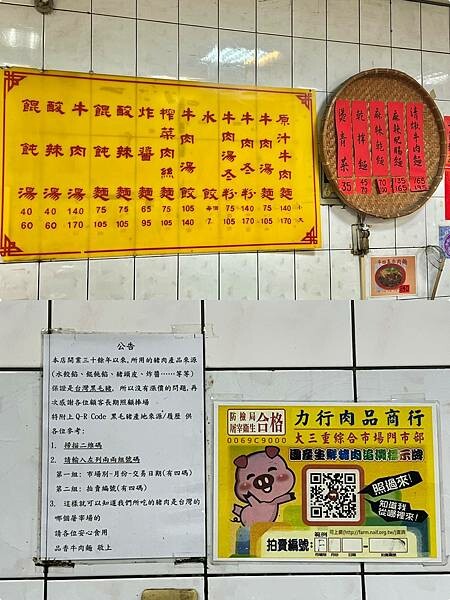 原汁牛肉麵 140 170 小 大
牛肉湯麵 75 105
牛肉湯冬粉 140 170
水餃 每個 7.
牛肉湯餃 140 170
榨菜肉絲麵 75 105
炸醬麵 65 95
酸辣麵 75 105
餛飩麵 75 105
牛肉湯 140 170
酸辣湯 40 60
餛飩湯 40 60
清燉牛肉麵 165 195
麻辣肥腸麵 135 165
麻辣乾麵
乾拌麵 45
燙青菜 35
公告
本店開業三十餘年以來,所用的豬肉產品來源
(水餃餡、餛飩餡、豬頭皮、炸醬……等等)
保證是台灣黑毛豬,所以沒有漲價的問題,再
次感謝各位顧客長期照顧捧場
特附上 Q-R Code 黑毛豬產地來源/履歷 供
各位參考:
1. 掃描二維碼
2. 請輸入左列兩兩組號碼
第一組: 市場別-月份-交易日期(有四碼)
第二組: 拍賣編號(有四碼)
3. 這樣就可以知道我們所吃的豬肉是台灣的
哪個屠宰場的
請各位安心食用
品香牛肉麵 敬上
防檢局
屠宰衛生
合格
0069C9000
力行肉品商行
大三重綜合市場門市部
國產生鮮豬肉追溯標示牌
照過來!
知道我
從哪裡來!
範例 可上網(http://farm.naif.org.tw/)查詢
拍賣編號: